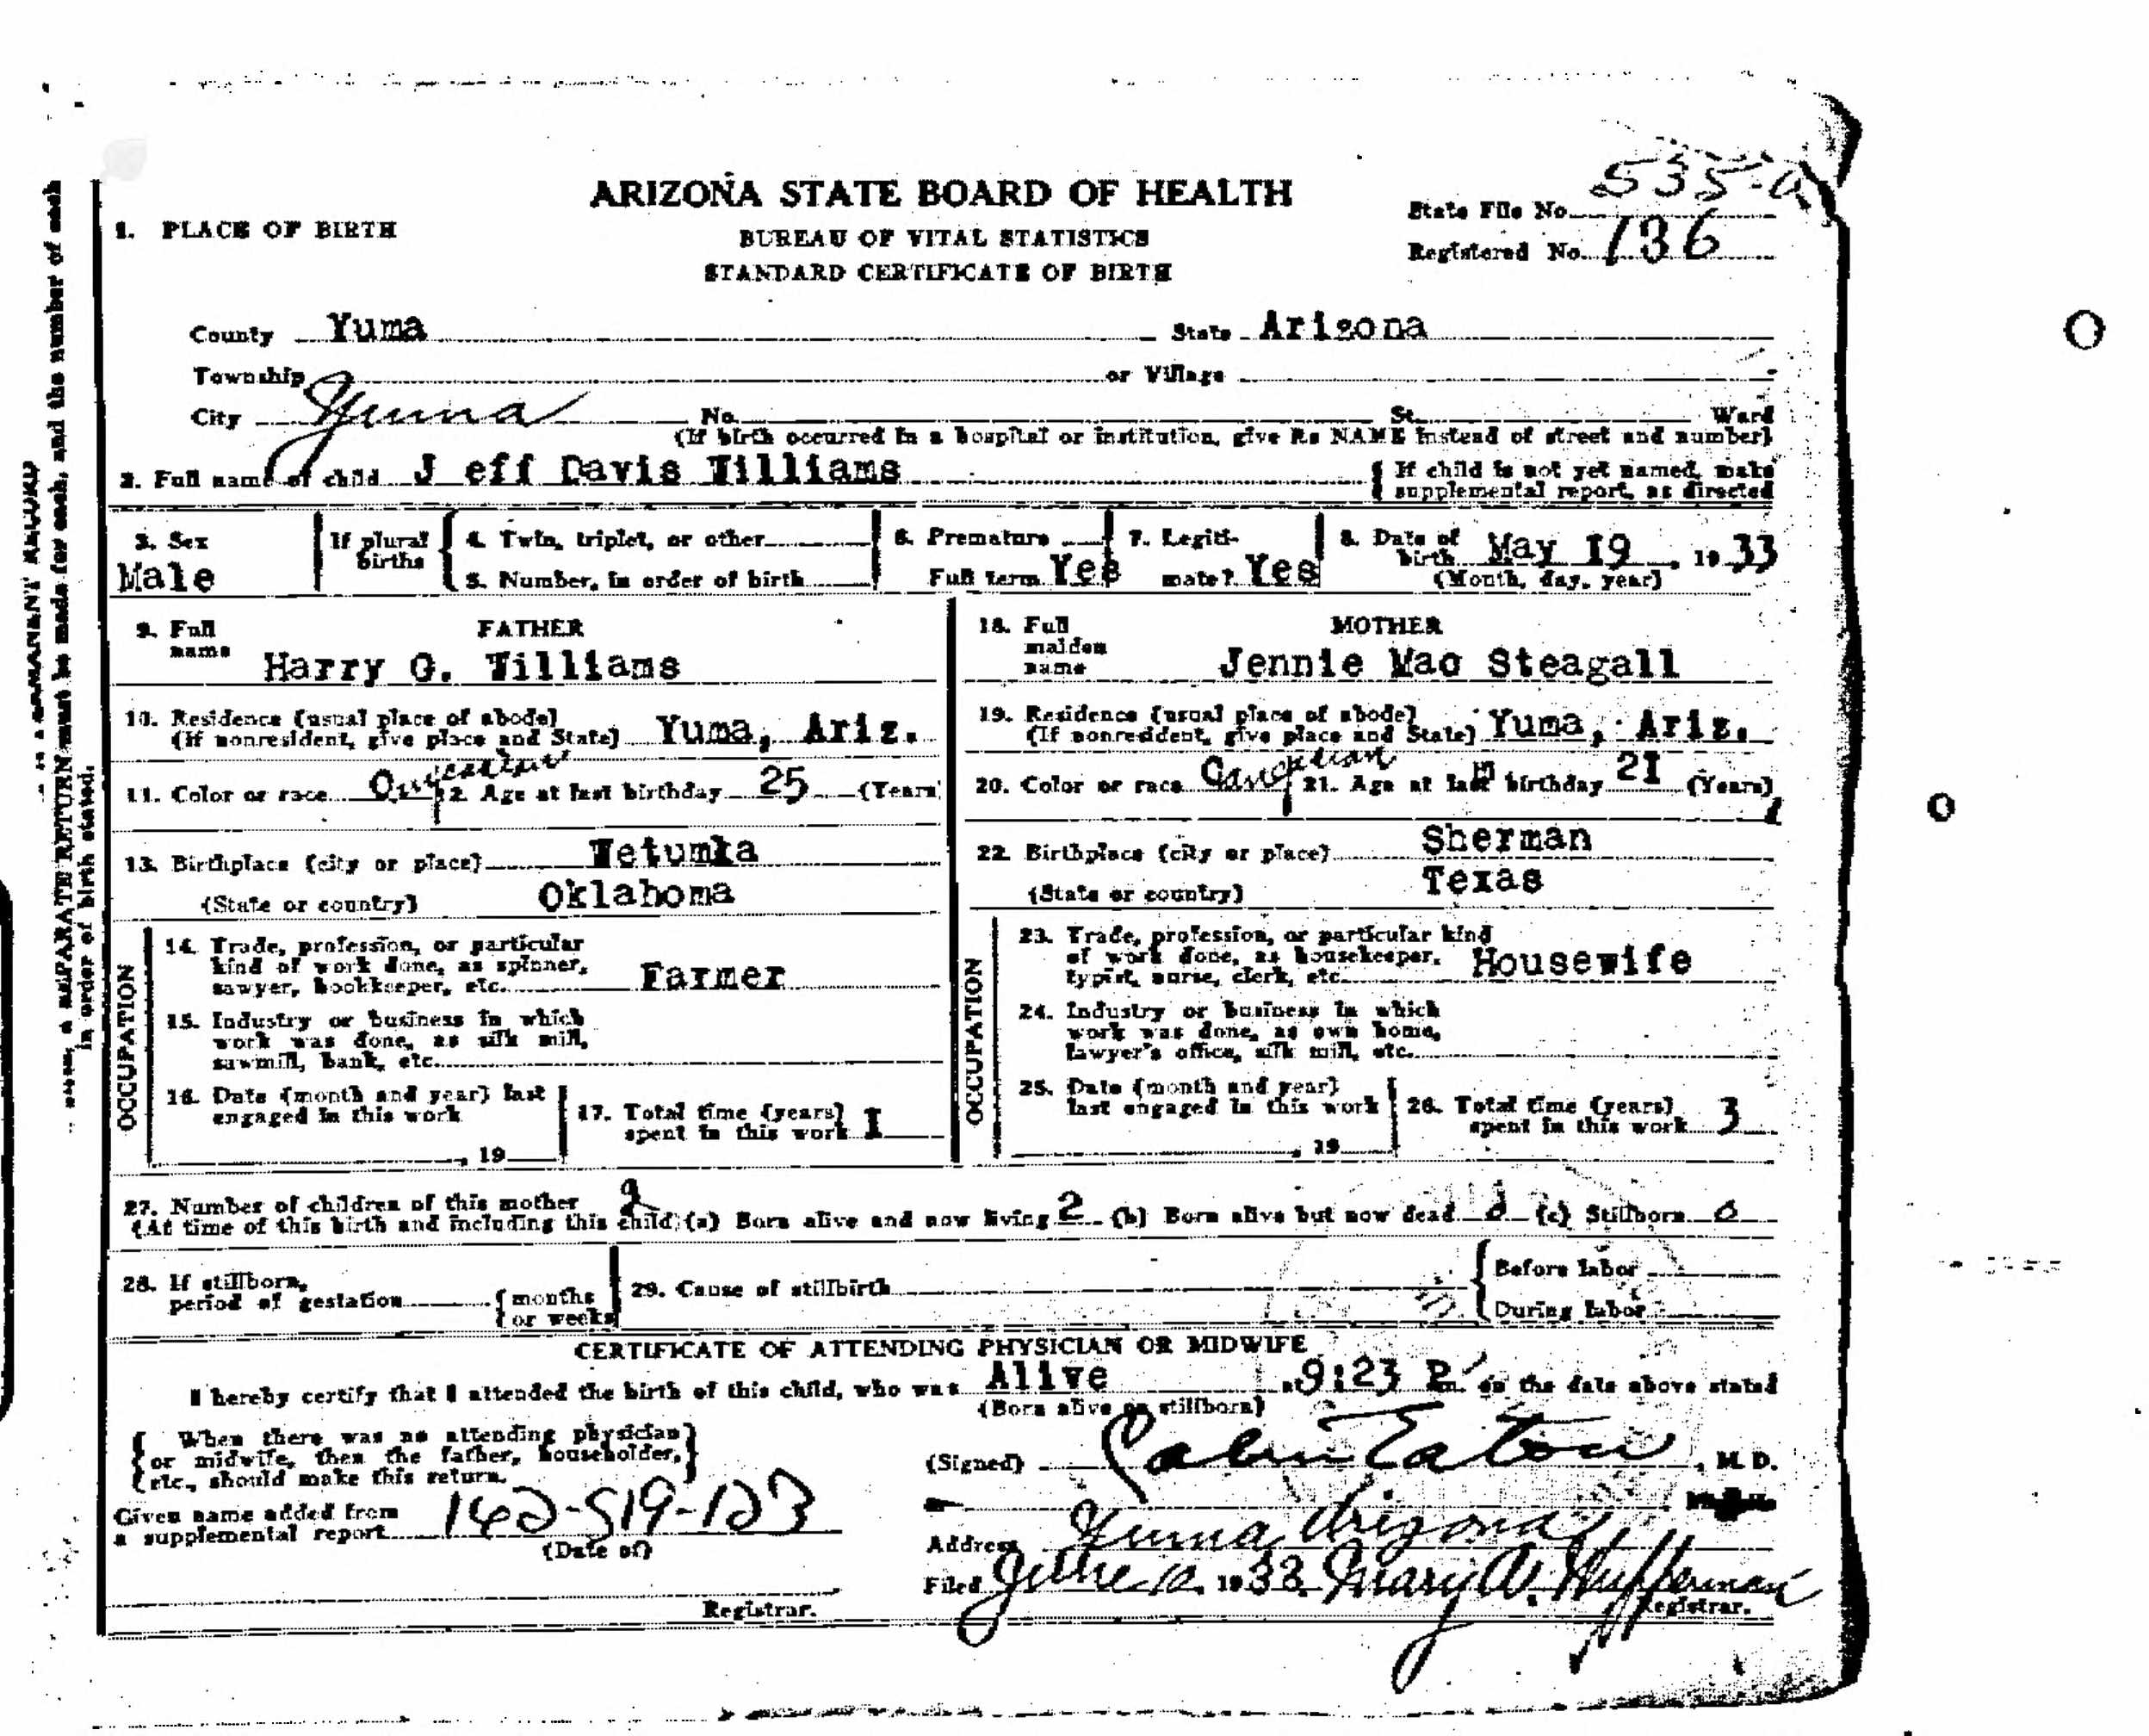 ARIZONA STATE BOARD OF HEALTH
BUREAU OF VITAL STATISTICS
STANDARD CERTIFICATE OF BIRTH
State File No. 535-a
Registered No. 136
1. PLACE OF BIRTH
County Yuma State Arizona
Township or Village
City Yuma No. St. Ward
(If birth occurred in a hospital or institution, give its NAME instead of street and number)
2. Full name of child J eff Davis Williams { If child is not yet named, make supplemental report, as directed
3. Sex Male
If plural births { 4. Twin, triplet, or other
5. Number, in order of birth
6. Premature
Full term Yes
7. Legitimate? Yes
8. Date of birth May 19, 1933
(Month, day, year)
FATHER
9. Full name Harry G. Williams
10. Residence (usual place of abode)
(If nonresident, give place and State) Yuma, Ariz.
11. Color or race Caucasian 12. Age at last birthday 25 (Years)
13. Birthplace (city or place) Wetumka
(State or country) Oklahoma
OCCUPATION
14. Trade, profession, or particular
kind of work done, as spinner,
sawyer, bookkeeper, etc. Farmer
15. Industry or business in which
work was done, as silk mill,
sawmill, bank, etc.
16. Date (month and year) last
engaged in this work
, 19
17. Total time (years)
spent in this work I
MOTHER
18. Full maiden name Jennie Mae Steagall
19. Residence (usual place of abode)
(If nonresident, give place and State) Yuma, Ariz.
20. Color or race Caucasian 21. Age at last birthday 21 (Years)
22. Birthplace (city or place) Sherman
(State or country) Texas
OCCUPATION
23. Trade, profession, or particular kind
of work done, as housekeeper,
typist, nurse, clerk, etc. Housewife
24. Industry or business in which
work was done, as own home,
lawyer's office, silk mill, etc.
25. Date (month and year)
last engaged in this work
, 19
26. Total time (years)
spent in this work 3
27. Number of children of this mother 2
(At time of this birth and including this child) (a) Born alive and now living 2 (b) Born alive but now dead 0 (c) Stillborn 0
28. If stillborn,
period of gestation { months
or weeks
29. Cause of stillbirth { Before labor
During labor
CERTIFICATE OF ATTENDING PHYSICIAN OR MIDWIFE
I hereby certify that I attended the birth of this child, who was Alive 9:23 P m. on the date above stated
(Born alive or stillborn)
{ When there was no attending physician
or midwife, then the father, householder,
etc., should make this return. }
(Signed) Eaton, M. D.
Given name added from
a supplemental report 142-519-123
(Date of)
Registrar.
Address Yuma Arizona
Filed June 10, 1933 Mary A. Hufferman
Registrar.
A SEPARATE RETURN must be made for each, and the number of each
in order of birth stated.
PERMANENT RECORD